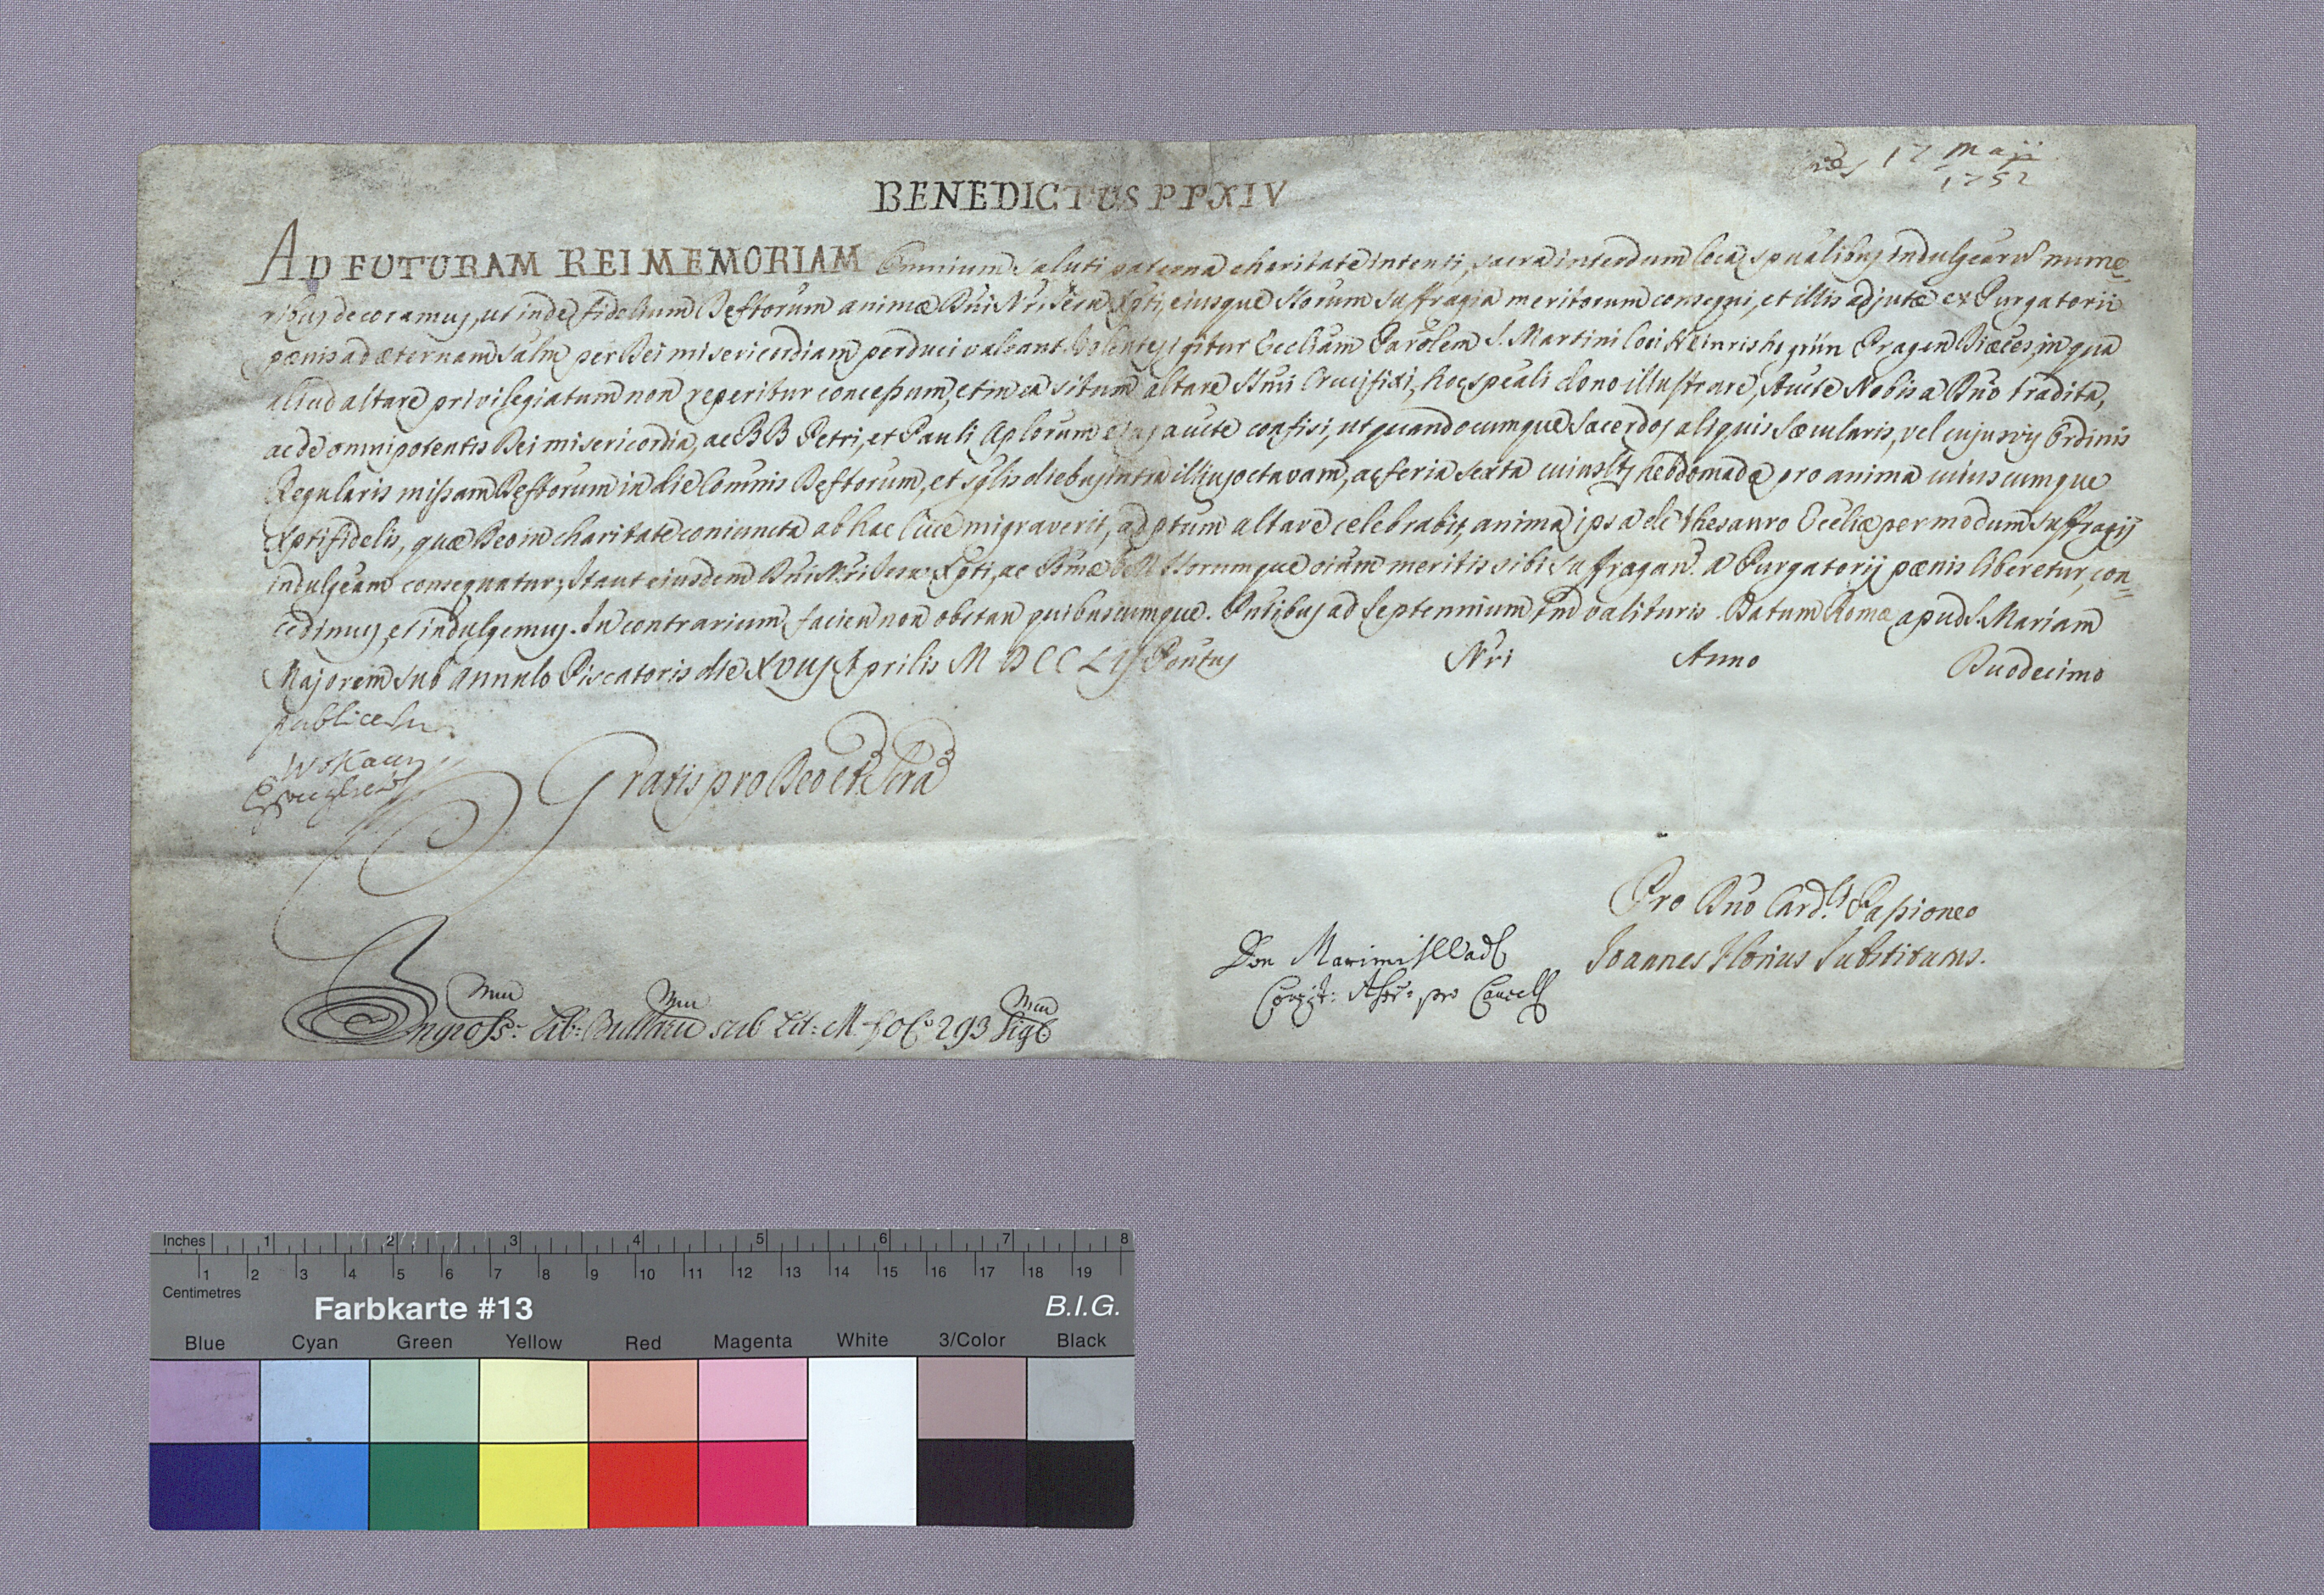 17 Maji
1752
BENEDICTUS PP XIV
AD FUTURAM REI MEMORIAM Omnium saluti paterna charitate intenti, sacra interdum loca spûalibus indulgearũ mune-
ribus decoramus, ut inde fidelium Deftorum animæ Dñi Nri Jesu Xpti, eiusque Storum suffragia meritorum consequi, et illis adjutæ ex Purgatorii
pœnis ad æternam salm per Dei misericordiam perduci valeant. Volentes igitur Eccliam Parolem S. Martini loci Heinrishsgrün Pragen Diæces, in qua
aliud altare privilegiatum non reperitur concessum, et in ea situm altare Smi Crucifixi, hoc speali dono illustrare, Aucte Nobis a Dño tradita,
ac de omnipotentis Dei misericordia, ac BB Petri, et Pauli Aplorum ejus aucte confisi, ut quandocumque Sacerdos aliquis Sæcularis, vel cujusvis Ordinis
Regularis missam Deftorum in die Comnis Deftorum, et sglis diebus intra illius octavam, ac feria sexta cuiuslt hebdomadæ pro anima cuiuscumque
Xptifidelis, quæ Deo in charitate coniuncta ab hac luce migraverit, ad ptum altare celebrabit, anima ipsa de thesauro Eccliæ per modum suffragij
indulgeam consequatur; Ita ut eiusdem Dñi Nri Jesu Xpti, ac Bmæ Storumque oium meritis sibi suffragan. a Purgatorij pœnis liberetur, con-
cedimus, et indulgemus. In contrarium facien non obstan quibuscumque. Pntibus ad Septennium tm valituris. Datum Romæ apud S. Mariam
Majorem sub Annulo Piscatoris die XVIIJ Aprilis MDCCLIJ Pontus Nri Anno Duodecimo
publicetur
Wokaun
Gratis pro Deo et Scra
Pro Dño Card.li Passioneo
Joannes Florius Substitutus.
Don Maximi
pro Cancell
Ingross: Lib: Bullaru sub Lit: M. fol: 293 Sig
Inches 1 2 3 4 5 6 7 8
1 2 3 4 5 6 7 8 9 10 11 12 13 14 15 16 17 18 19
Centimetres
Farbkarte #13 B.I.G.
Blue Cyan Green Yellow Red Magenta White 3/Color Black